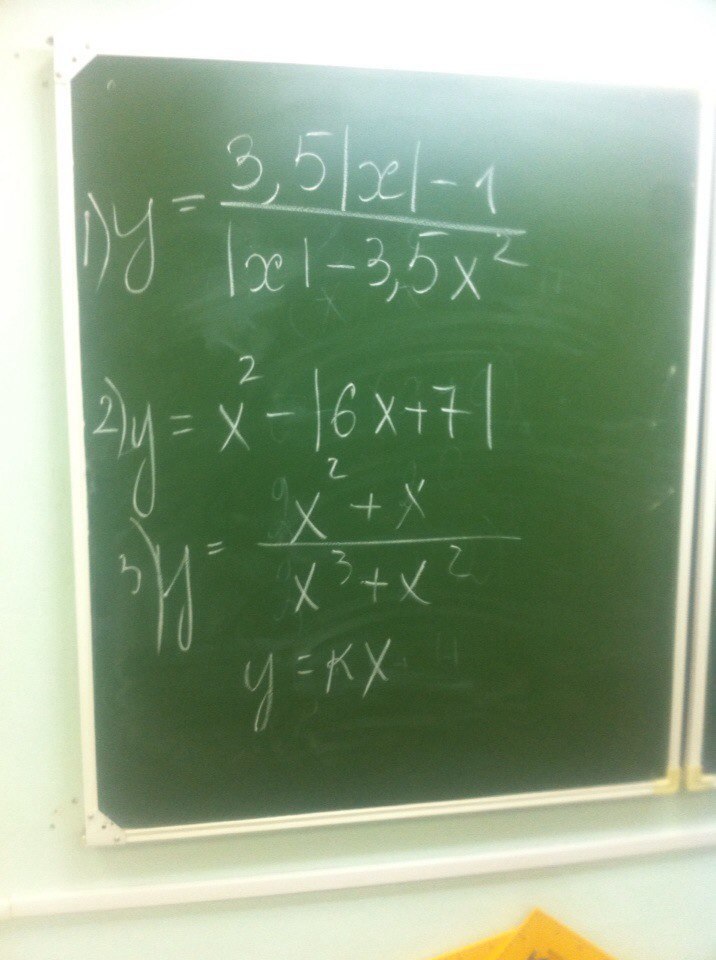 1) y = (3,5|x| - 1) / (|x| - 3,5x²)
2) y = x² - |6x + 7|
3) y = (x² + x) / (x³ + x²)
y = kx